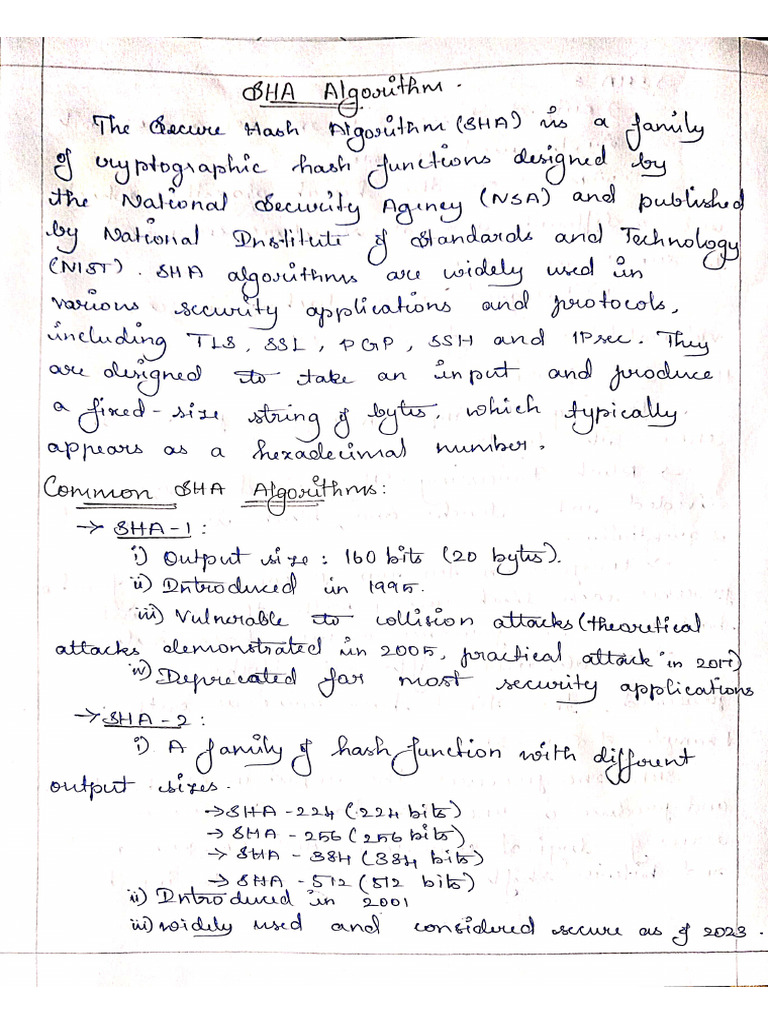 SHA Algorithm.
The Secure Hash Algorithm (SHA) is a family
of cryptographic hash functions designed by
the National Security Agency (NSA) and published
by National Institute of Standards and Technology
(NIST). SHA algorithms are widely used in
various security applications and protocols,
including TLS, SSL, PGP, SSH and IPsec. They
are designed to take an input and produce
a fixed-size string of bytes, which typically
appears as a hexadecimal number.
Common SHA Algorithms:
→ SHA-1:
i) Output size: 160 bits (20 bytes).
ii) Introduced in 1995.
iii) Vulnerable to collision attacks (theoretical
attacks demonstrated in 2005, practical attack in 2017)
iv) Deprecated for most security applications
→ SHA-2:
i) A family of hash function with different
output sizes.
→ SHA-224 (224 bits)
→ SHA-256 (256 bits)
→ SHA-384 (384 bits)
→ SHA-512 (512 bits)
ii) Introduced in 2001
iii) widely used and considered secure as of 2023.